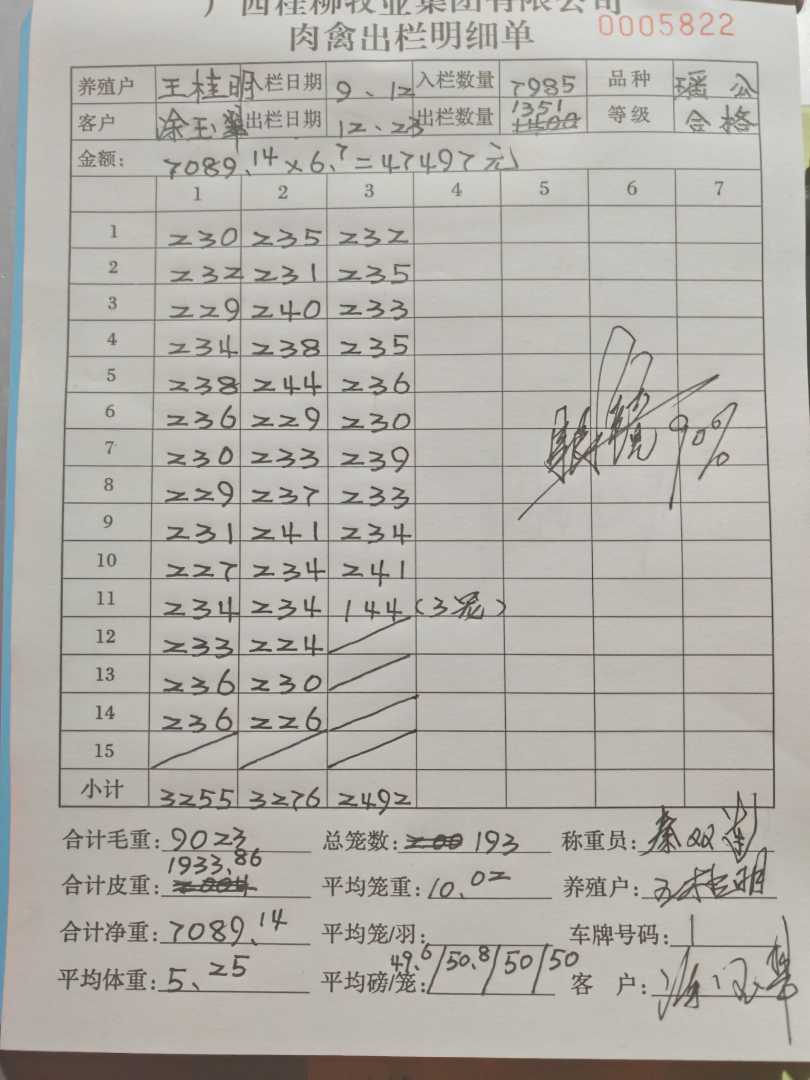 广西桂柳牧业集团有限公司
肉禽出栏明细单 0005822
养殖户 王桂明 入栏日期 9、12 入栏数量 7985 品种 瑶公
客户 涂玉翠 出栏日期 12、23 出栏数量 1351 1400 等级 合格
金额: 7089.14×6.7=47497元
1 2 3 4 5 6 7
1 230 235 232
2 232 231 235
3 229 240 233
4 234 238 235
5 238 244 236
6 236 229 230
7 230 233 239 90%
8 229 237 233
9 231 241 234
10 227 234 241
11 234 234 144(3笼)
12 233 224
13 236 230
14 236 226
15
小计 3255 3276 2492
合计毛重: 9023 总笼数: 200 193 称重员: 秦双
合计皮重: 1933.86 2004 平均笼重: 10.02 养殖户: 王桂明
合计净重: 7089.14 平均笼/羽: 车牌号码: 1
平均体重: 5.25 平均磅/笼: 49.6/50.8/50/50 客 户: